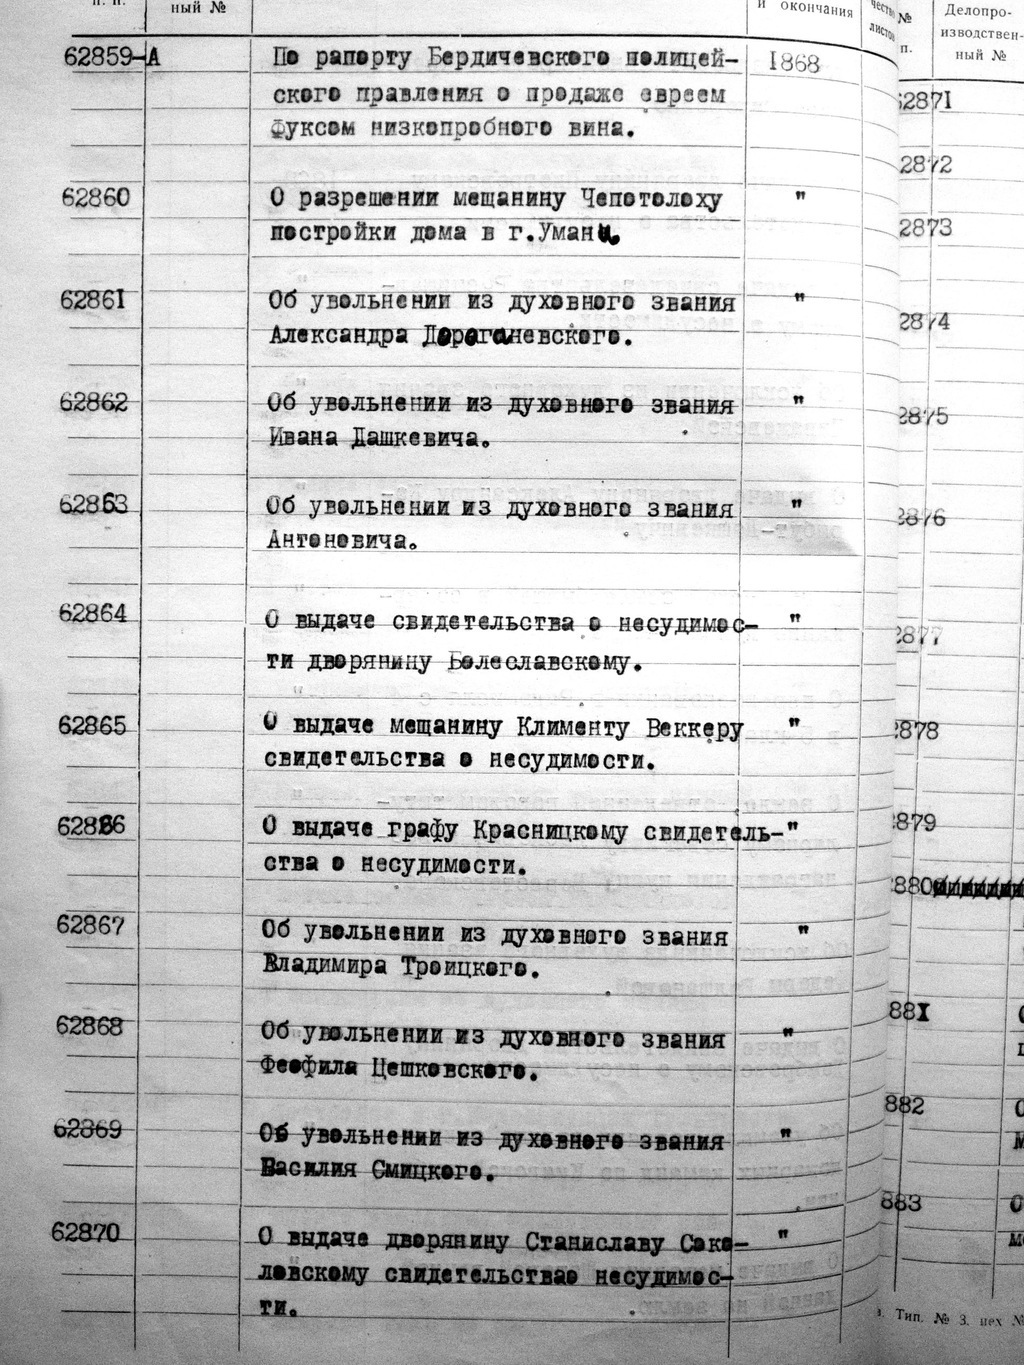 п. п.
ный №
и окончания
62859-А По рапорту Бердичевского полицей- 1868
ского правления о продаже евреем
Фуксом низкопробного вина.
62860 О разрешении мещанину Чепотолоху "
постройки дома в г.Умани.
62861 Об увольнении из духовного звания "
Александра Дорогоневского.
62862 Об увольнении из духовного звания "
Ивана Дашкевича.
62863 Об увольнении из духовного звания "
Антоновича.
62864 О выдаче свидетельства о несудимос- "
ти дворянину Болеславскому.
62865 О выдаче мещанину Клименту Веккеру "
свидетельства о несудимости.
62866 О выдаче графу Красницкому свидетель-"
ства о несудимости.
62867 Об увольнении из духовного звания "
Владимира Троицкого.
62868 Об увольнении из духовного звания "
Феофила Цешковского.
62869 Об увольнении из духовного звания "
Василия Смицкого.
62870 О выдаче дворянину Станиславу Соко- "
ловскому свидетельствао несудимос-
ти.
листов
№
п.
Делопро-
изводствен-
ный №
2871
2872
2873
2874
2875
2876
2877
2878
879
880
881
882
883
Тип. № 3. цех №